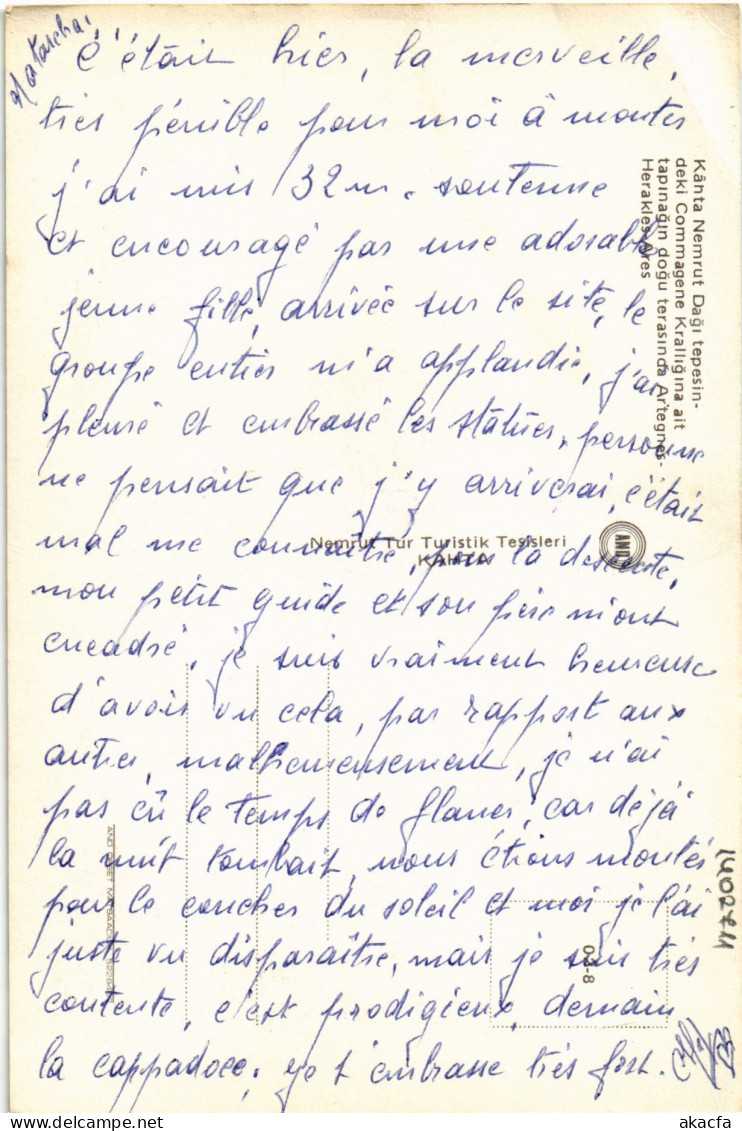 Natascha
c'était hier, la merveille,
très pénible pour moi à monter
j'ai mis 32 m. soutenue
et encouragé par une adorable
jeune fille, arrivée sur le site, le
groupe entier m'a applaudie, j'ai
pleuré et embrassé les statues, personne
ne pensait que j'y arriverai, c'était
mal me connaitre, pour la descente,
mon petit guide et son père m'ont
encadré, je suis vraiment heureuse
d'avoir vu cela, par rapport aux
autres, malheureusement, je n'ai
pas eû le temps de flaner, car déjà
la nuit tombait, nous étions montés
pour le coucher du soleil et moi je l'ai
juste vu disparaître, mais je suis très
contente, c'est prodigieux, demain
la cappadoce, je t'embrasse très fort.
Kâhta Nemrut Dağı tepesin-
deki Commagene Krallığına ait
tapınağın doğu terasında Artegnes-
Herakles-Ares
Nemrut Tur Turistik Tesisleri
KAHTA
AND
02-8
140274
© akacfa
akacfa